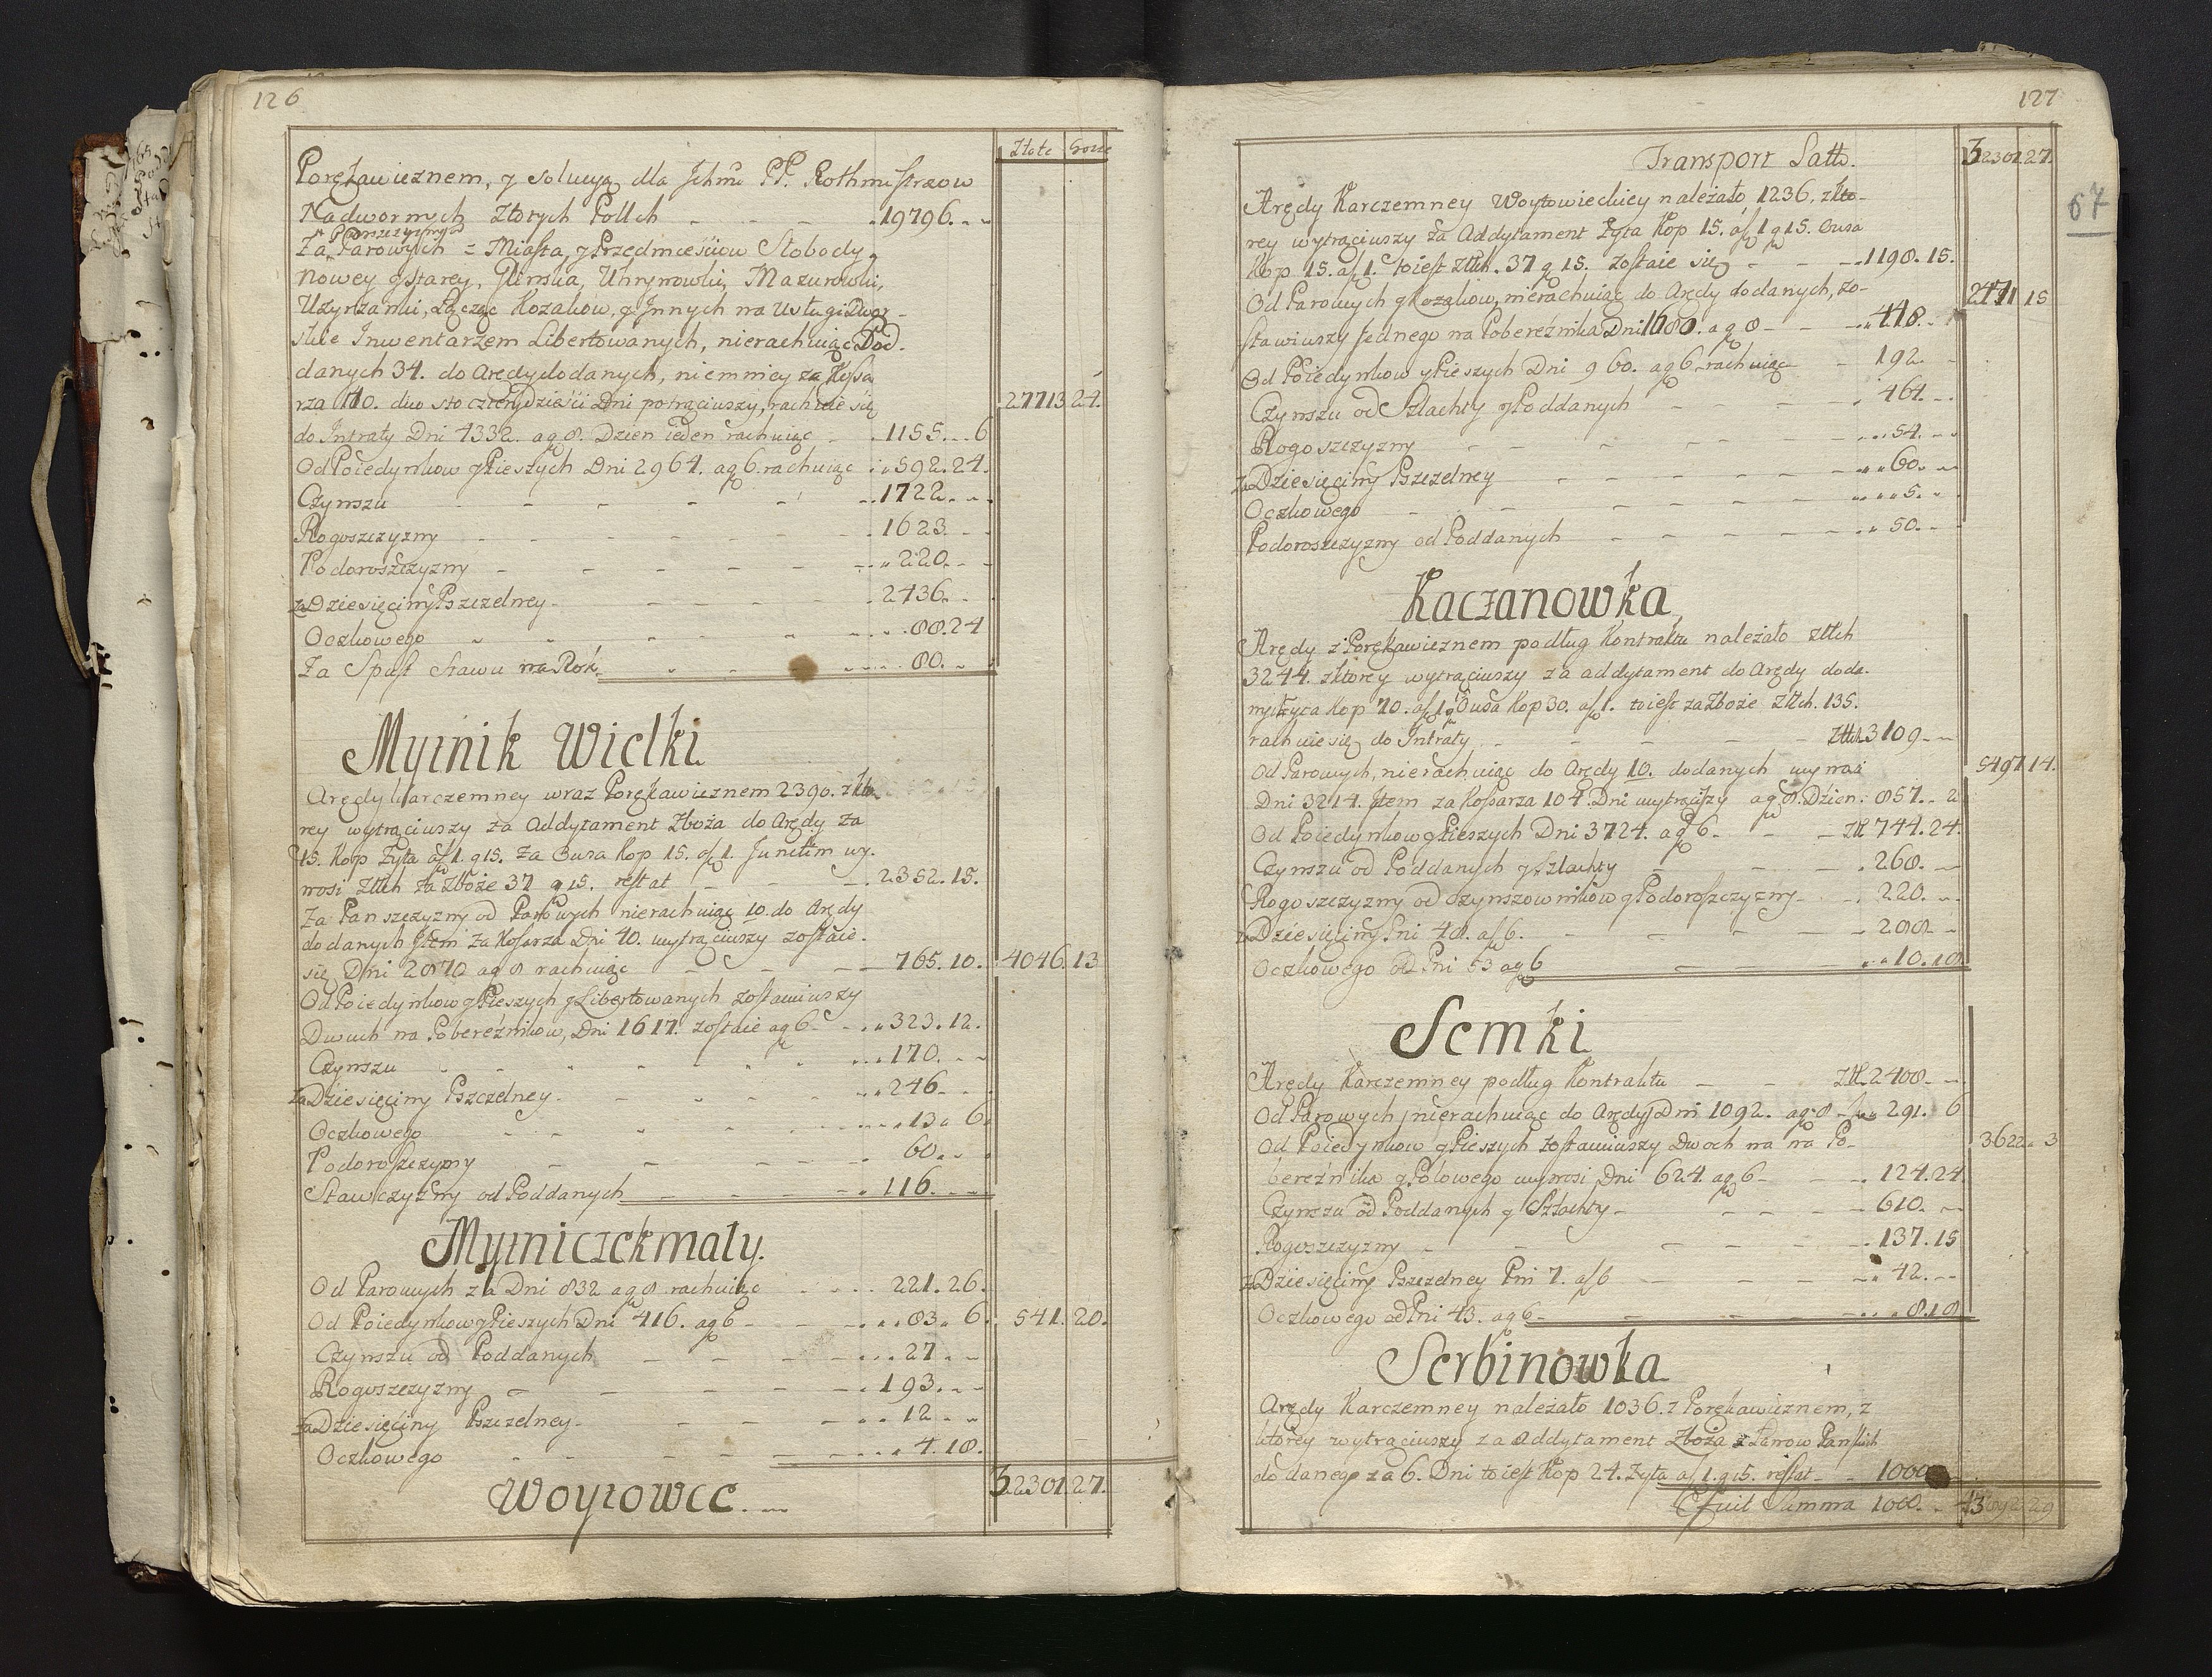 126
Złote Grosze
Porękawicznem, y solucyą dla Ichmć PP. Rothmistrzow
Nadwornych Złotych Pollch - - - 19796. -
Pańszczyzny od
Za Parowych z Miasta, y Przedmieściow Słobody
Nowey y Starey, Glinska, Uhrynowki, Mazurowki,
Uzyrzanki, Łącząc Kozakow, y Innych na Usługi Dwor-
skie Inwentarzem Libertowanych, nierachuiąc Pod.
danych 34. do Arędy dodanych, niemniey za Kossa
rza dwosto czterydzieści Dni potrąciwszy, rachuie się 27713 24.
do Intraty Dni 4332. a g 8. Dzien ieden rachuiąc - 1155. 6
Od Poiedynkow y Pieszych Dni 2964. a g 6. rachuiąc 592. 24.
Czynszu - - - - 1722. -
Rogoszczyzny - - - - 1623. -
Podoroszczyzny - - - - 220. -
za Dziesięciny Pszczelney - - - 2436. -
Oczkowego - - - - 88. 24
Za Spust Stawu na Rok - - - 80. -
Mytnik Wielki
Arędy Karczemney wraz Porękawicznem 2390. z kto
rey wytrąciwszy za Addytament Zboża do Arędy za
15. Kop Żyta a f 1. g 15. za Owsa Kop 15. a f 1. Junctim wy.
nosi Złłch za Zboże 37 g 15. restat - - 2352. 15.
Za Panszczyzny od Parowych nierachuiąc 10. do Arędy
dodanych Item za Kosarza Dni 40. wytrąciwszy zostaie.
się Dni 2870 a g 8 rachuiąc - - - 765. 10. 4046. 13
Od Poiedynkow y Pieszych y Libertowanych zostawiwszy
Dwuch na Pobereźnikow, Dni 1617. zostaie a g 6 - 323. 12.
Czynszu - - - - 170. -
za Dziesięciny Pszczelney - - - 246. -
Oczkowego - - - - 13. 6.
Podoroszczyzny - - - - 60. -
Stawczyzny od Poddanych - - - 116. -
Mytniczek mały.
Od Parowych za Dni 832 a g 8 rachuiąc - - 221. 26.
Od Poiedynkow y Pieszych Dni 416. a g 6 - - 83. 6. 541. 20.
Czynszu od Poddanych - - - 27 -
Rogoszczyzny - - - - 193. -
za Dziesięciny Pszczelney - - - 12 -
Oczkowego - - - - 4. 18.
Woytowce. 32301. 27.
127
67
Transport Latto. 32301. 27.
Arędy Karczemney Woytowieckiey należało 1236. z kto-
rey wytrąciwszy za Addytament Żyta Kop 15. a f 1 g 15. Owsa
Kop 15. a f 1. to iest Złłch. 37 g 15. zostaie się - - 1198. 15.
Od Parowych y Kozakow, nierachuiąc do Arędy dodanych, zo- 2471 15
stawiwszy Jednego na Pobereźnika Dni 1680. a g 8 - - 448. -
Od Poiedynkow y Pieszych Dni 960. a g 6 rachuiąc - 192. -
Czynszu od Szlachty y Poddanych - - 464. -
Rogoszczyzny - - - - 54. -
za Dziesięciny Pszczelney - - - 60. -
Oczkowego - - - - 5. -
Podoroszczyzny od Poddanych - - - 50. -
Kaczanowka,
Arędy z Porękawicznem podług Kontraktu należało złłch
3244. z ktorey wytrąciwszy za addytament do Arędy doda.
ny Żyta Kop 70. a f 1 g Owsa Kop 30. a f 1. to iest za Zboże Złłch. 135.
rachuie się do Intraty - - - Złłch 3109 -
Od Parowych, nierachuiąc do Arędy 10. dodanych wynosi 5497 14.
Dni 3214. Item za Kossarza 104. Dni wytrąciwszy a g 8. Dzien. 857. 2
Od Poiedynkow y Pieszych Dni 3724. a g 6 - - Złł 744. 24.
Czynszu od Poddanych y Szlachty - - 268. -
Rogoszczyzny od Czynszownikow y Podoroszczyzny - 220. -
za Dziesięciny Pni 48. a f 6. - - - 288 -
Oczkowego od Pni 53 a g 6 - - - 10. 18
Semki
Arędy Karczemney podług Kontraktu - - Złł 2408. -
Od Parowych, nierachuiąc do Arędy, Dni 1092. a g 8 - 291. 6
Od Poiedynkow y Pieszych zostawiwszy Dwoch na na Po- 3622. 3
bereźnika y Polowego wynosi Dni 624. a g 6 - - 124. 24.
Czynszu od Poddanych y Szlachty - - 610. -
Rogoszczyzny - - - - 137. 15
za Dziesięciny Pszczelney Pni 7. a f 6 - - 42. -
Oczkowego od Pni 43. a g 6 - - - 8. 18
Serbinowka
Arędy Karczemney należało 1036. z Porękawicznem, z
ktorey wytrąciwszy za addytament Zboża z Łanow Panskich
dodanego za 6. Dni to iest Kop 24. Żyta a f 1. g 15. restat - 1000
Summa 1000. -